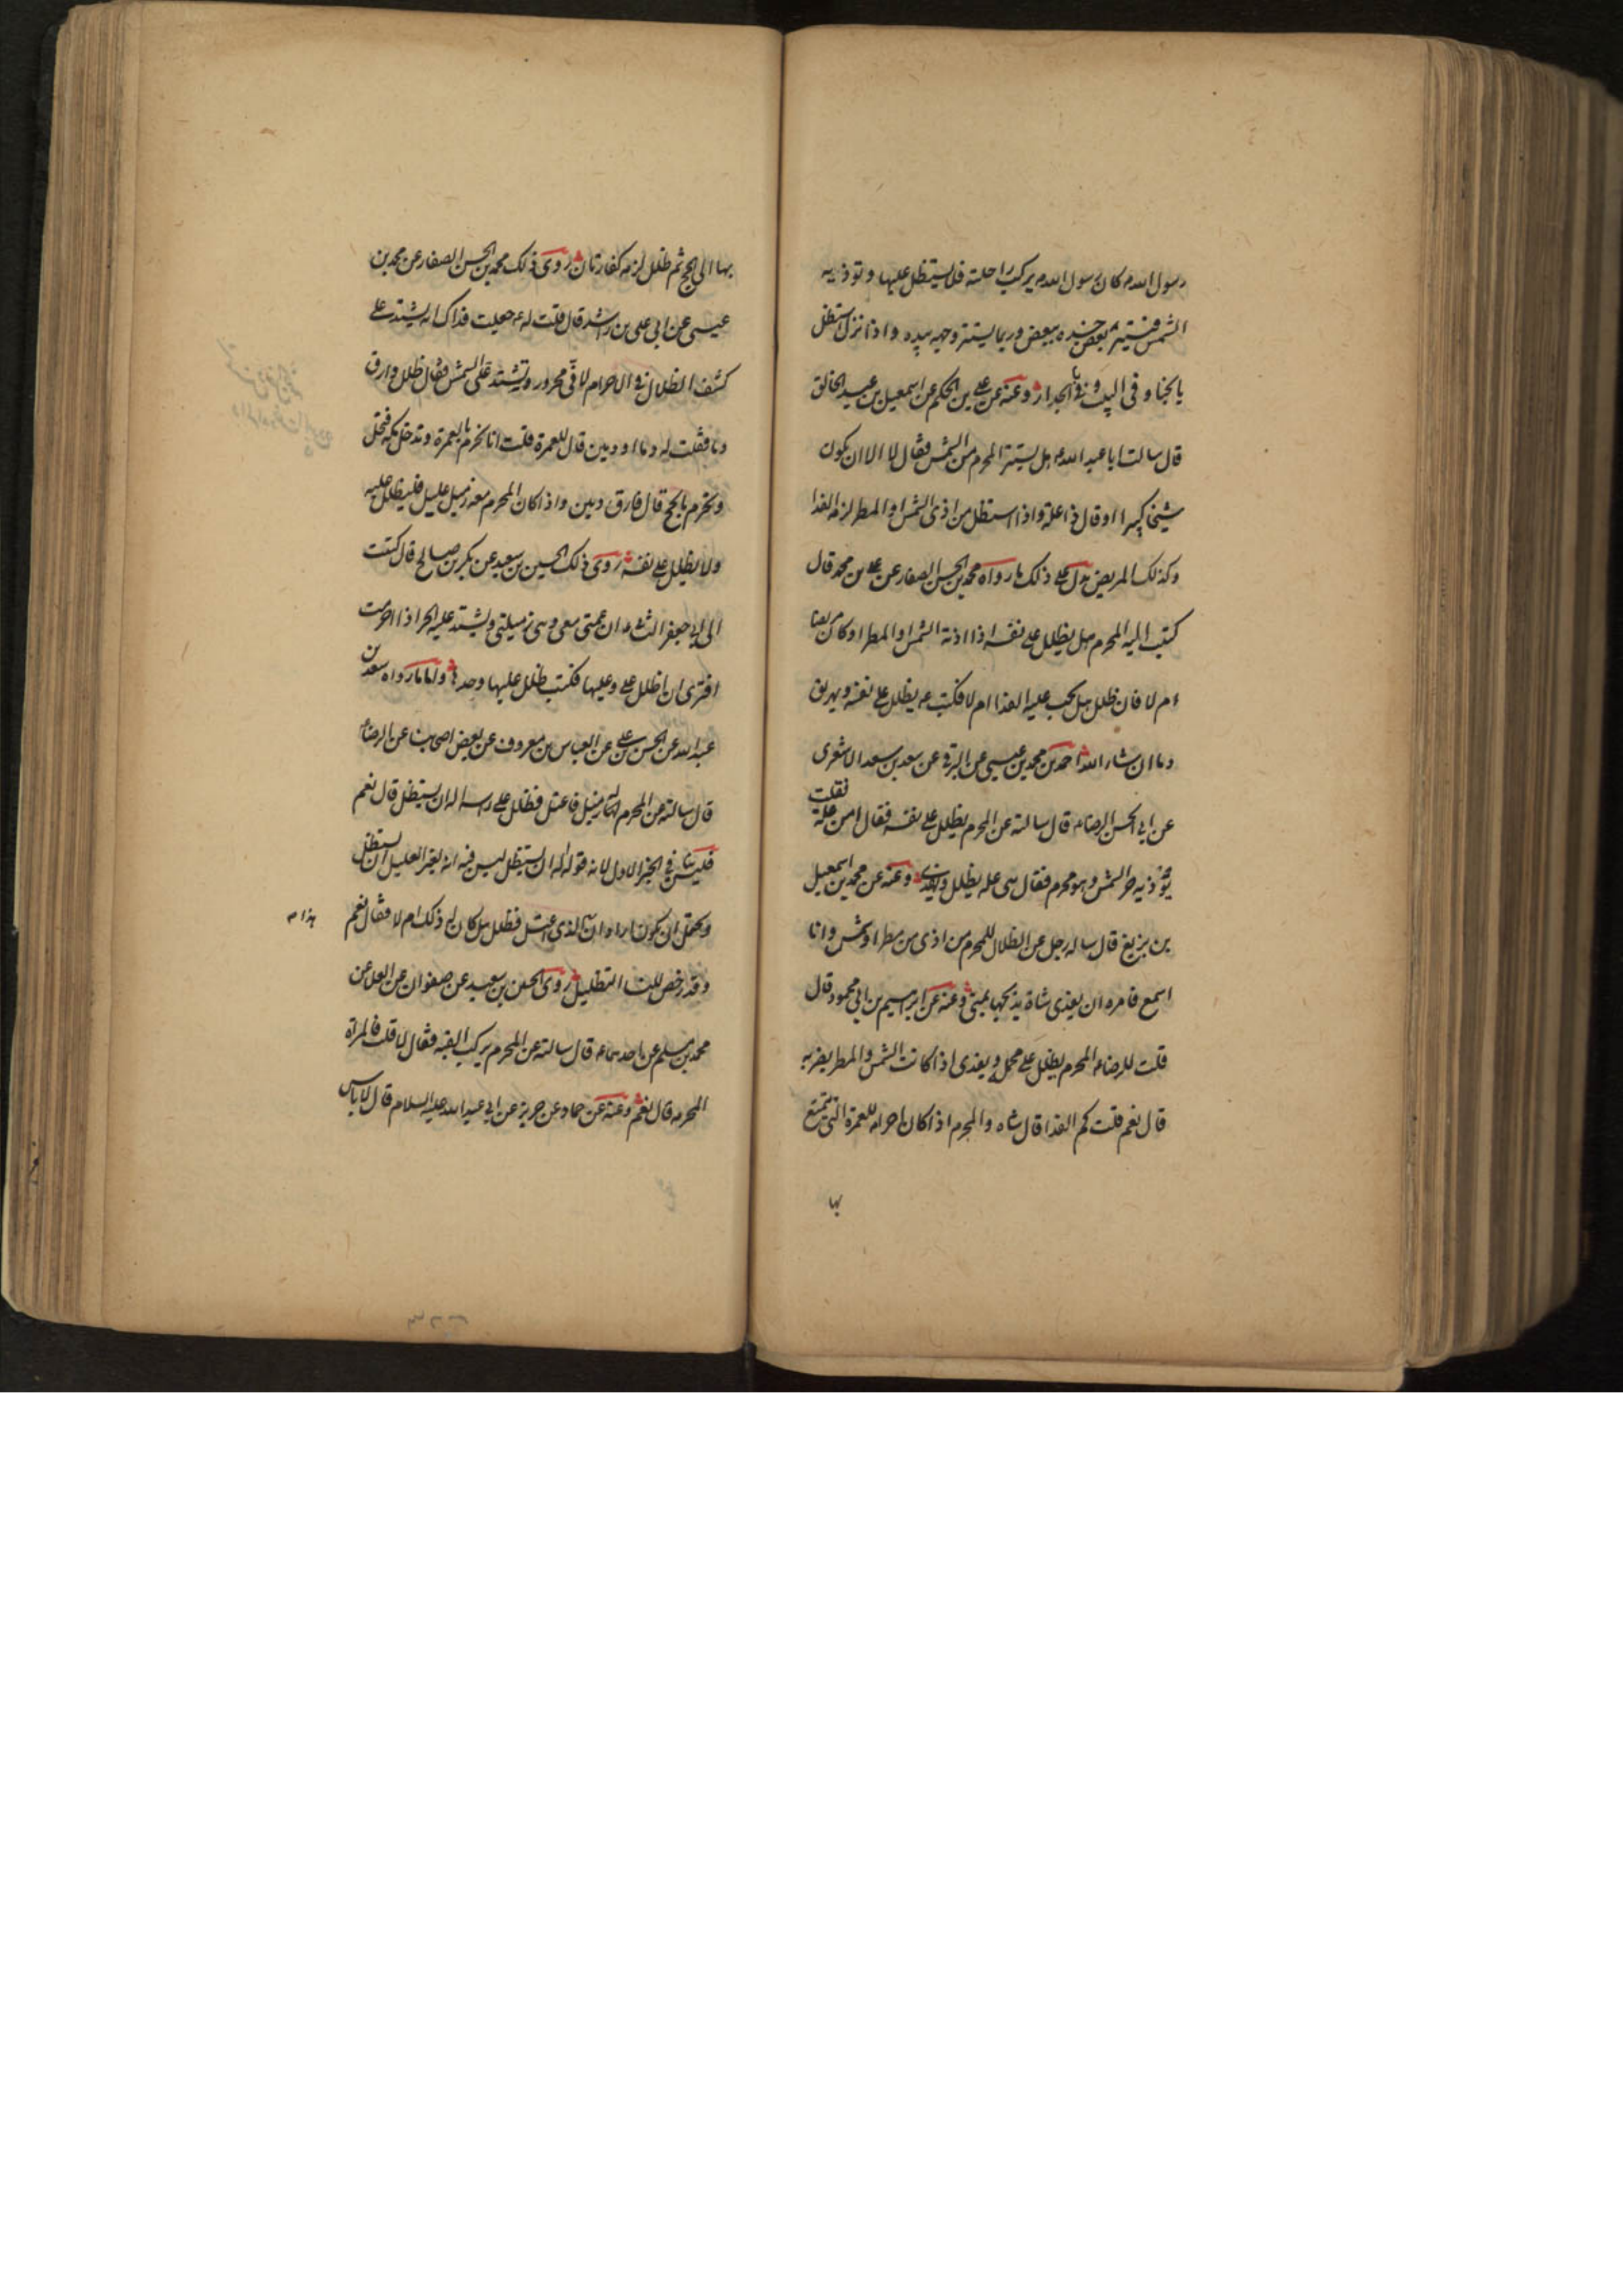 رسول الله ص كان رسول الله ص يركب راحلته فلا يستظل عليها وتوذيه
الشمس فيستر بعض جسده ببعض وربما يستر وجهه بيده واذا نزل استظل
بالخبا وفى البيت وبالجدار وعنه عن على بن الحكم عن اسمعيل بن عبد الخالق
قال سالت ابا عبد الله ع هل يستتر المحرم من الشمس فقال لا الا ان يكون
شيخا كبيرا او قال ذا علة واذا استظل من اذى الشمس او المطر لزمه الفدا
وكذلك المريض يدل على ذلك ما رواه محمد بن الحسن الصفار عن على بن محمد قال
كتبت اليه المحرم هل يظلل على نفسه اذا اذته الشمس او المطر او كان مريضا
ام لا فان ظلل هل يجب عليه الفدا ام لا فكتب ع يظلل على نفسه ويهريق
دما ان شاء الله احمد بن محمد بن عيسى عن البرقى عن سعد بن سعد الاشعرى
عن ابى الحسن الرضا ع قال سالته عن المحرم يظلل على نفسه فقال امن علة فقلت
يوذيه حر الشمس وهو محرم فقال هى علة يظلل ويفدى وعنه عن محمد بن اسمعيل
بن بزيع قال ساله رجل عن الظلال للمحرم من اذى من مطر او شمس وانا
اسمع فامره ان يفدى شاة يذبحها بمنى وعنه عن ابرهيم بن ابى محمود قال
قلت للرضا ع المحرم يظلل على محمله ويفدى اذا كانت الشمس والمطر يضر به
قال نعم قلت كم الفدا قال شاه والمحرم اذا كان احرامه للعمرة التى يتمتع
بها
بها الى الحج ثم ظلل لزمه كفارتان روى ذلك محمد بن الحسن الصفار عن محمد بن
عيسى عن ابى على بن راشد قال قلت له ع جعلت فداك انه يشتد على
كشف الظلال فى الاحرام لانى محرور ويشتد على الشمس فقال ظلل وارق
دما فقلت له دما او دمين قال للعمرة قلت انا نحرم بالعمرة وندخل مكة فنحل
ونحرم بالحج قال فارق دمين واذا كان المحرم معه زميل عليل فليظلل عليه
ولا يظلل على نفسه روى ذلك الحسين بن سعيد عن بكر بن صالح قال كتبت
الى ابى جعفر الثانى ع ان عمتى معى وهى زميلتى ويشتد عليها الحر اذا احرمت
افترى ان اظلل على وعليها فكتب ظلل عليها وحدها واما ما رواه سعد بن
عبد الله عن الحسن بن على عن العباس بن معروف عن بعض اصحابنا عن الرضا ع
قال سالته عن المحرم له زميل فاعتل فظلل على راسه اله ان يستظل قال نعم
فليس فى الخبر الاول لانه قوله اله ان يستظل ليس فيه انه لغير العليل ان يستظل
ويحتمل ان يكون اراد ان الذى اعتل فظلل هل كان له ذلك ام لا فقال نعم
هذا م
وقد رخص للنسا التظليل روى الحسين بن سعيد عن صفوان عن العلا عن
محمد بن مسلم عن احدهما ع قال سالته عن المحرم يركب القبه فقال لا قلت فالمراة
المحرمه قال نعم وعنه عن حماد عن حريز عن ابى عبد الله عليه السلام قال لا باس